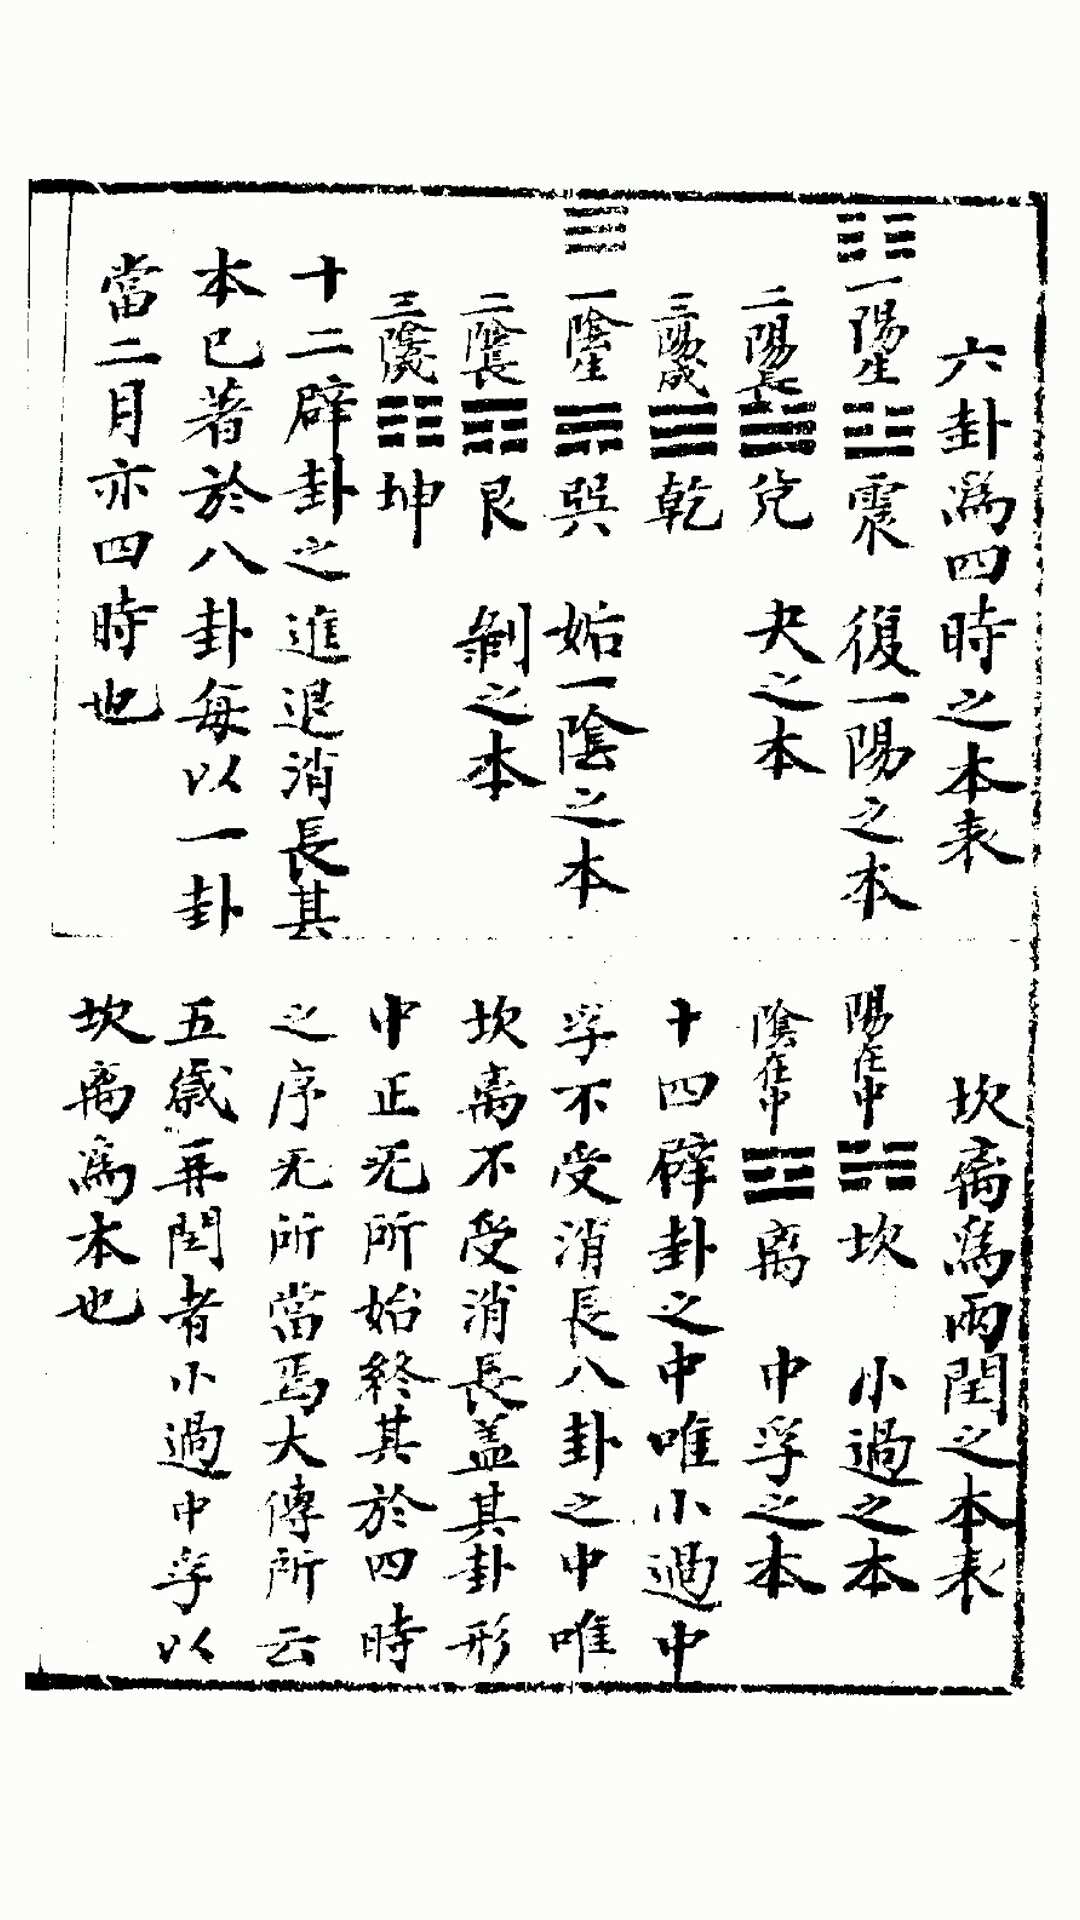 六卦爲四時之本表
☷一陽生☳震 復一陽之本
二陽長☱兌 夬之本
三陽成☰乾
☰一陰生☴巽 姤一陰之本
二陰長☶艮 剝之本
三陰成☷坤
十二辟卦之進退消長其
本已著於八卦每以一卦
當二月亦四時也
坎离爲兩閏之本表
陽在中☵坎 小過之本
陰在中☲离 中孚之本
十四辟卦之中唯小過中
孚不受消長八卦之中唯
坎离不受消長盖其卦形
中正无所始終其於四時
之序无所當焉大傳所云
五歲再閏者小過中孚以
坎离爲本也